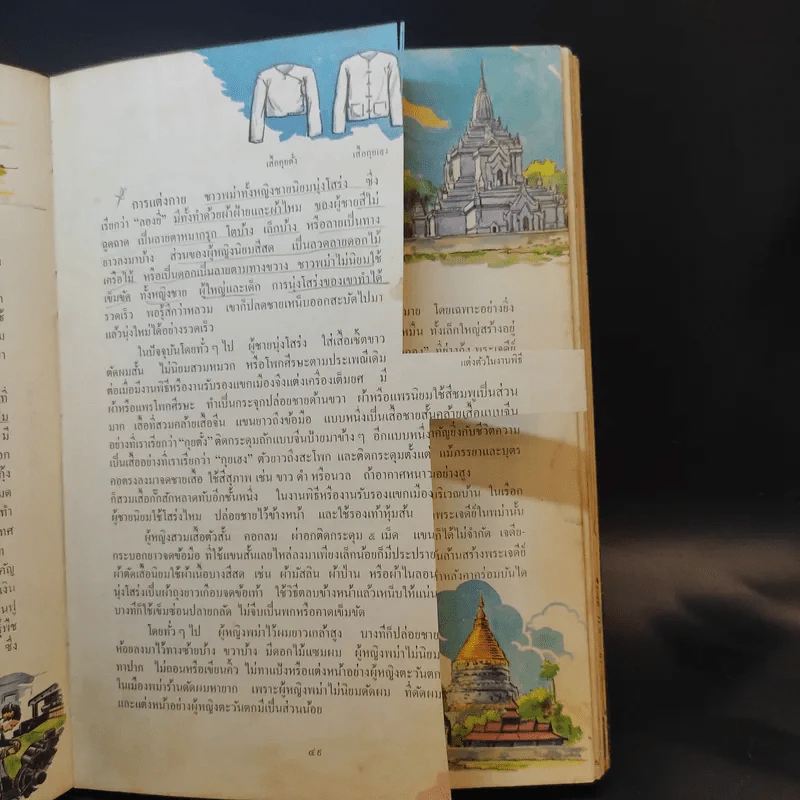 เสื้อกุยตั๋ง
เสื้อกุยเฮง
การแต่งกาย ชาวพม่าทั้งหญิงชายนิยมนุ่งโสร่ง ซึ่ง
เรียกว่า “ลองยี” มีทั้งทำด้วยผ้าฝ้ายและผ้าไหม ของผู้ชายสีไม่
ฉูดฉาด เป็นลายตาหมากรุก โตบ้าง เล็กบ้าง หรือลายเป็นทาง
ยาวลงมาบ้าง ส่วนของผู้หญิงนิยมสีสด เป็นลวดลายดอกไม้
เครือไม้ หรือเป็นดอกเป็นลายตามทางขวาง ชาวพม่าไม่นิยมใช้
เข็มขัด ทั้งหญิงชาย ผู้ใหญ่และเด็ก การนุ่งโสร่งของเขาทำได้
รวดเร็ว พอรู้สึกว่าหลวม เขาก็ปลดชายเหน็บออกสะบัดไปมา
แล้วนุ่งใหม่ได้อย่างรวดเร็ว
ในปัจจุบันโดยทั่ว ๆ ไป ผู้ชายนุ่งโสร่ง ใส่เสื้อเชิ้ตขาว
ตัดผมสั้น ไม่นิยมสวมหมวก หรือโพกศีรษะตามประเพณีเดิม
ต่อเมื่อมีงานพิธีหรืองานรับรองแขกเมืองจึงแต่งเครื่องเต็มยศ มี
ผ้าหรือแพรโพกศีรษะ ทำเป็นกระจุกปล่อยชายด้านขวา ผ้าหรือแพรนิยมใช้สีชมพูเป็นส่วน
มาก เสื้อที่สวมคล้ายเสื้อจีน แขนยาวถึงข้อมือ แบบหนึ่งเป็นเสื้อชายสั้นคล้ายเสื้อแบบจีน
อย่างที่เราเรียกว่า “กุยตั๋ง” ติดกระดุมถักแบบจีนป้ายมาข้าง ๆ อีกแบบหนึ่ง
เป็นเสื้ออย่างที่เราเรียกว่า “กุยเฮง” ตัวยาวถึงสะโพก และติดกระดุมตั้งแต่
คอตรงลงมาจดชายเสื้อ ใช้สีสุภาพ เช่น ขาว ดำ หรือนวล ถ้าอากาศหนาว
ก็สวมเสื้อกั๊กสักหลาดทับอีกชั้นหนึ่ง ในงานพิธีหรืองานรับรองแขกเมือง
ผู้ชายนิยมใช้โสร่งไหม ปล่อยชายไว้ข้างหน้า และใช้รองเท้าหุ้มส้น
ผู้หญิงสวมเสื้อตัวสั้น คอกลม ผ่าอกติดกระดุม ๕ เม็ด แขน
กระบอกยาวจดข้อมือ ที่ใช้แขนสั้นเลยไหล่ลงมาเพียงเล็กน้อยก็มีประปราย
ผ้าตัดเสื้อนิยมใช้ผ้าเนื้อบางสีสด เช่น ผ้ามัสลิน ผ้าป่าน หรือผ้าไนลอน
นุ่งโสร่งเป็นผ้าถุงยาวเกือบจดข้อเท้า ใช้วิธีตลบข้างหน้าแล้วเหน็บให้แน่น
บางทีก็ใช้เข็มซ่อนปลายกลัด ไม่จีบเป็นพกหรือคาดเข็มขัด
โดยทั่ว ๆ ไป ผู้หญิงพม่าไว้ผมยาวเกล้าสูง บางทีก็ปล่อยชาย
ห้อยลงมาไว้ทางซ้ายบ้าง ขวาบ้าง มีดอกไม้แซมผม ผู้หญิงพม่าไม่นิยม
ทาปาก ไม่ถอนหรือเขียนคิ้ว ไม่ทาแป้งหรือแต่งหน้าอย่างผู้หญิงตะวันตก
ในเมืองพม่าร้านดัดผมหายาก เพราะผู้หญิงพม่าไม่นิยมดัดผม ที่ดัดผม
และแต่งหน้าอย่างผู้หญิงตะวันตกมีเป็นส่วนน้อย
๔๙
โดยเฉพาะอย่างยิ่ง
ทั้งเล็กใหญ่สร้างอยู่
แต่งตัวในงานพิธี
ยิ่งกับชีวิตความ
แม้ภรรยาและบุตร
อย่างสูง
บริเวณบ้าน ในเรือก
พระเจดีย์ในพม่านั้น
ก็ได้ไม่จำกัด เจดีย-
สร้างพระเจดีย์